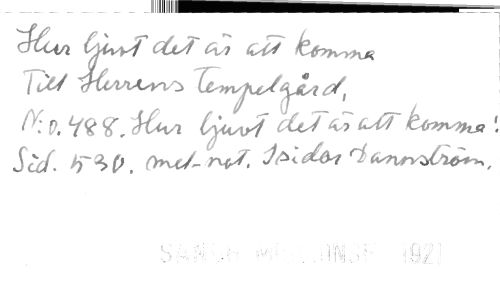 Hur ljuvt det är att komma
Till Herrens Tempelgård,
N:o. 488. Hur ljuvt det är att komma!
Sid. 530. met-not. Isidor Dannström.